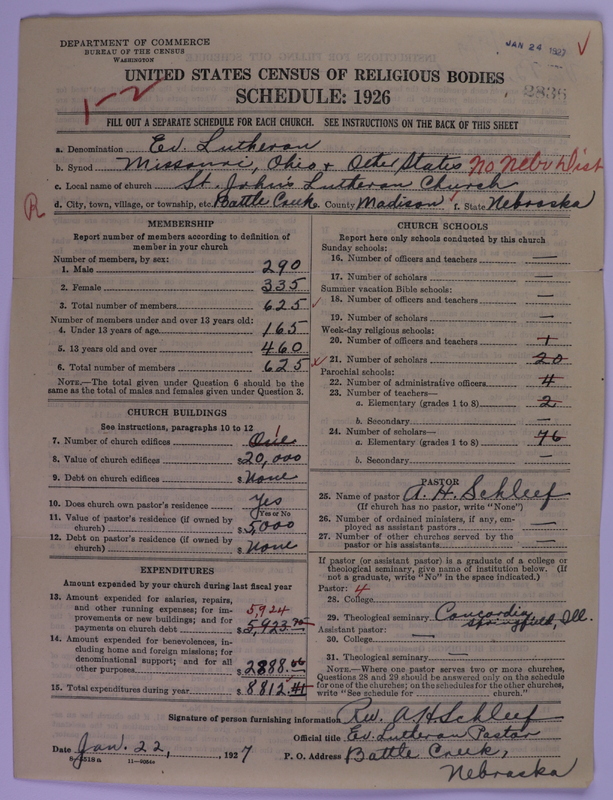 DEPARTMENT OF COMMERCE
BUREAU OF THE CENSUS
WASHINGTON
JAN 24 1927
UNITED STATES CENSUS OF RELIGIOUS BODIES
SCHEDULE: 1926
1-2
2836
FILL OUT A SEPARATE SCHEDULE FOR EACH CHURCH. SEE INSTRUCTIONS ON THE BACK OF THIS SHEET
a. Denomination Ev. Lutheran
b. Synod Missouri, Ohio & Other States No Nebr Dist
c. Local name of church St. John's Lutheran Church
R d. City, town, village, or township, etc. Battle Creek County Madison f. State Nebraska
MEMBERSHIP
Report number of members according to definition of
member in your church
Number of members, by sex:
1. Male 290
2. Female 335
3. Total number of members 625
Number of members under and over 13 years old:
4. Under 13 years of age 165
5. 13 years old and over 460
6. Total number of members 625
NOTE.—The total given under Question 6 should be the
same as the total of males and females given under Question 3.
CHURCH BUILDINGS
See instructions, paragraphs 10 to 12
7. Number of church edifices One 1
8. Value of church edifices $20,000
9. Debt on church edifices $ None
10. Does church own pastor's residence? Yes
(Yes or No)
11. Value of pastor's residence (if owned by
church) $5,000
12. Debt on pastor's residence (if owned by
church) $ None
EXPENDITURES
Amount expended by your church during last fiscal year
13. Amount expended for salaries, repairs,
and other running expenses; for im-
provements or new buildings; and for 5924
payments on church debt $5,923.75
14. Amount expended for benevolences, in-
cluding home and foreign missions; for
denominational support; and for all
other purposes $2888.66
15. Total expenditures during year $8812.41
CHURCH SCHOOLS
Report here only schools conducted by this church
Sunday schools:
16. Number of officers and teachers —
17. Number of scholars —
Summer vacation Bible schools:
18. Number of officers and teachers —
19. Number of scholars —
Week-day religious schools:
20. Number of officers and teachers 1
21. Number of scholars 20
Parochial schools:
22. Number of administrative officers 4
23. Number of teachers—
a. Elementary (grades 1 to 8) 2
b. Secondary —
24. Number of scholars—
a. Elementary (grades 1 to 8) 76
b. Secondary —
PASTOR
25. Name of pastor A. H. Schleef
(If church has no pastor, write "None")
26. Number of ordained ministers, if any, em-
ployed as assistant pastors —
27. Number of other churches served by the
pastor or his assistants —
If pastor (or assistant pastor) is a graduate of a college or
theological seminary, give name of institution below. (If
not a graduate, write "No" in the space indicated.)
Pastor: 4
28. College
29. Theological seminary Concordia Springfield, Ill.
Assistant pastor:
30. College —
31. Theological seminary —
NOTE.—Where one pastor serves two or more churches,
Questions 28 and 29 should be answered only on the schedule
for one of the churches; on the schedules for the other churches,
write "See schedule for church."
Signature of person furnishing information Rev. A H Schleef
Official title Ev. Lutheran Pastor
Date Jan. 22, 1927 P. O. Address Battle Creek,
Nebraska